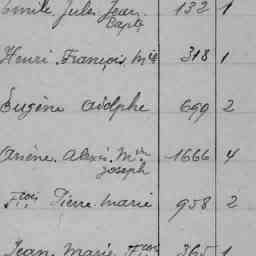 Emile Jules Jean 132 1
Bapte
Henri François Mie 318 1
Eugène Adolphe 699 2
Alexis Mie 1666 4
Joseph
Fcois Pierre Marie 958 2
Jean Marie Fcois 365 1